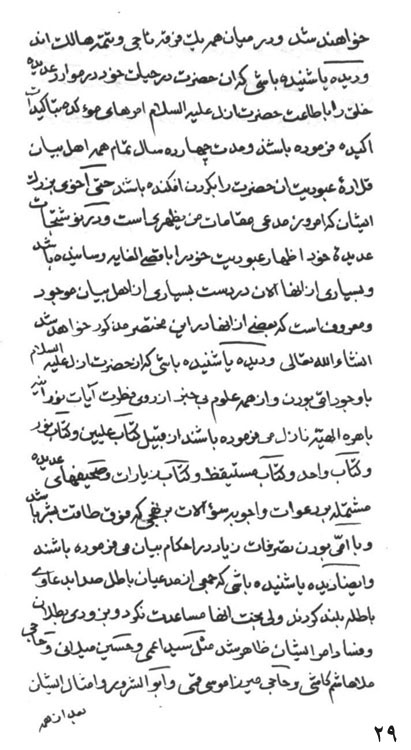 خواهند شد و در میان همه یک فرقه ناجی و تتمه هالک اند
و دیده یا شنیده باشی که ان حضرت در حیات خود در موارد عدیده
خلق را باطاعت حضرت ازل علیه السلام امرهای موءکد میتاکیدات
اکیده فرموده باشند و مدت چهارده سال تمام همه اهل بیان
قلادهٔ عبودیت ان حضرت را بگردن افکنده باشند حتی اخوی بزرگ
ایشان که امروز مدعی مقامات من یظهری است و در نوشتجات
عدیدهٔ خود اظهار عبودیت خود را باقصی الغایه رسانیده باشد
و بسیاری از انها الان در دست بسیاری از اهل بیان موجود
و معروف است که بعضی از انها در این مختصر مذکور خواهد شد
انشاءالله تعالی و دیده یا شنیده باشی که ان حضرت ازل علیه السلام
با وجود امی بودن و از همه علوم بی خبر از روی فطرت آیات
باهره الهیه نازل می فرموده باشند از قبیل کتاب علیین و کتاب نور
و کتاب واحد و کتاب مستیقظ و کتاب زیارات و صحیفهای عدیده
مشتمله بر دعوات و اجوبه سؤالات بر نهجی که فوق طاقت بشر باشد
و با امی بودن تصرفات زیاد در احکام بیان می فرموده باشند
و ایضا دیده یا شنیده باشی که جمعی از مدعیان باطل صدا بدعاوی
باطله بلند کردند ولی بخت انها مساعدت نکرد و بزودی بطلان
و فساد امر ایشان ظاهر شد مثل سید اعمی و حسین میلانی و حاجی
ملا هاشم کاشی و حاجی میرزا موسی قمی و ابو الشرور و امثال ایشان
بعد از همه
۲۹